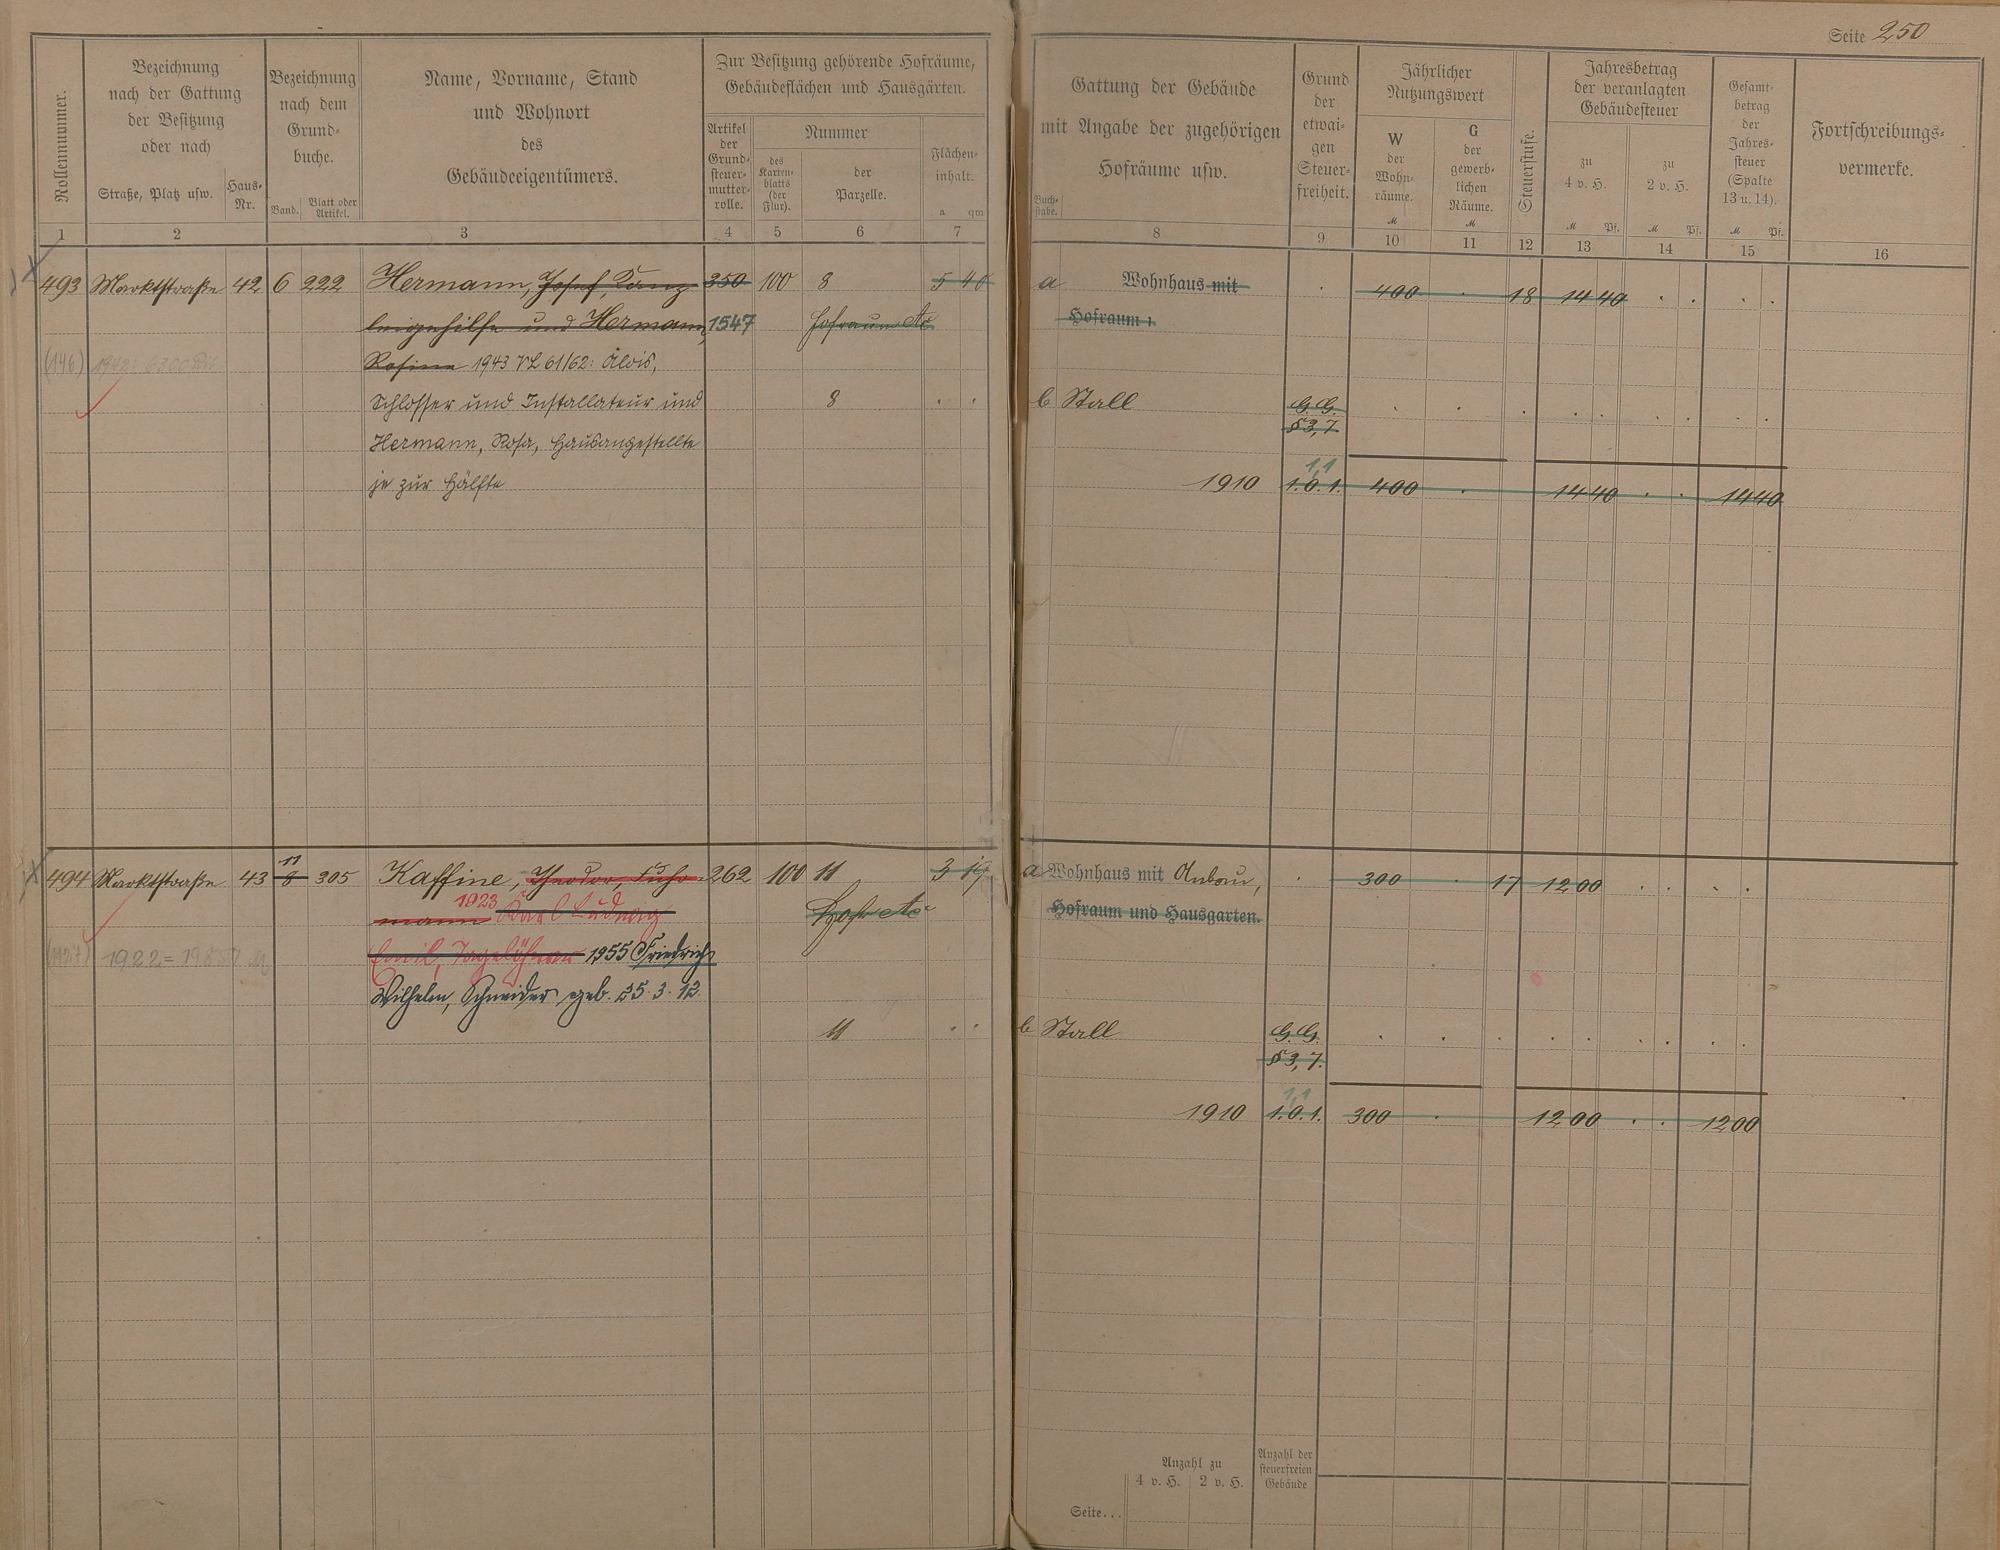 Seite 250
Rollennummer.
Bezeichnung
nach der Gattung
der Besitzung
oder nach
Straße, Platz usw.
Haus-
Nr.
Bezeichnung
nach dem
Grund-
buche.
Band.
Blatt oder
Artikel.
Name, Vorname, Stand
und Wohnort
des
Gebäudeeigentümers.
Zur Besitzung gehörende Hofräume,
Gebäudeflächen und Hausgärten.
Artikel
der
Grund-
steuer-
mutter-
rolle.
Nummer
des
Karten-
blatts
(der
Flur).
der
Parzelle.
Flächen-
inhalt.
a qm
Buch-
stabe.
Gattung der Gebäude
mit Angabe der zugehörigen
Hofräume usw.
Grund
der
etwai-
gen
Steuer-
freiheit.
Jährlicher
Nutzungswert
W
der
Wohn-
räume.
M
G
der
gewerb-
lichen
Räume.
M
Steuerstufe.
Jahresbetrag
der veranlagten
Gebäudesteuer
zu
4 v. H.
M Pf.
zu
2 v. H.
M Pf.
Gesamt-
betrag
der
Jahres-
steuer
(Spalte
13 u. 14).
M Pf.
Fortschreibungs-
vermerke.
1 2 3 4 5 6 7 8 9 10 11 12 13 14 15 16
493 Marktstraße 42 6 222 Hermann, Josef, Kanz- 350 100 8 5 40 a Wohnhaus mit 400 18 14 40
leigehilfe und Hermann, 1547 Hofraum Ac Hofraum
(146) 1942: 6300 Rosina 1943 VL 61/62: Alois,
Schlosser und Installateur und 8 b Stall G. G.
§ 3, 7.
Hermann, Rosa, Hausangestellte
je zur Hälfte 1910 1.0.1. 400 14 40 14 40
1,1
494 Marktstraße 43 8 305 Kaffine, Theodor, Fuhr- 262 100 11 3 19 a Wohnhaus mit Anbau, 300 17 12 00
11
mann 1923 Karl Ludwig Hofr Ac Hofraum und Hausgarten.
1922 = Emil, Tagelöhner 1955 Friedrich
Wilhelm, Schneider geb. 25. 3. 12.
11 b Stall G. G.
§ 3, 7.
1,1
1910 1.0.1. 300 12 00 12 00
Anzahl zu
4 v. H. 2 v. H.
Anzahl der
steuerfreien
Gebäude
Seite...